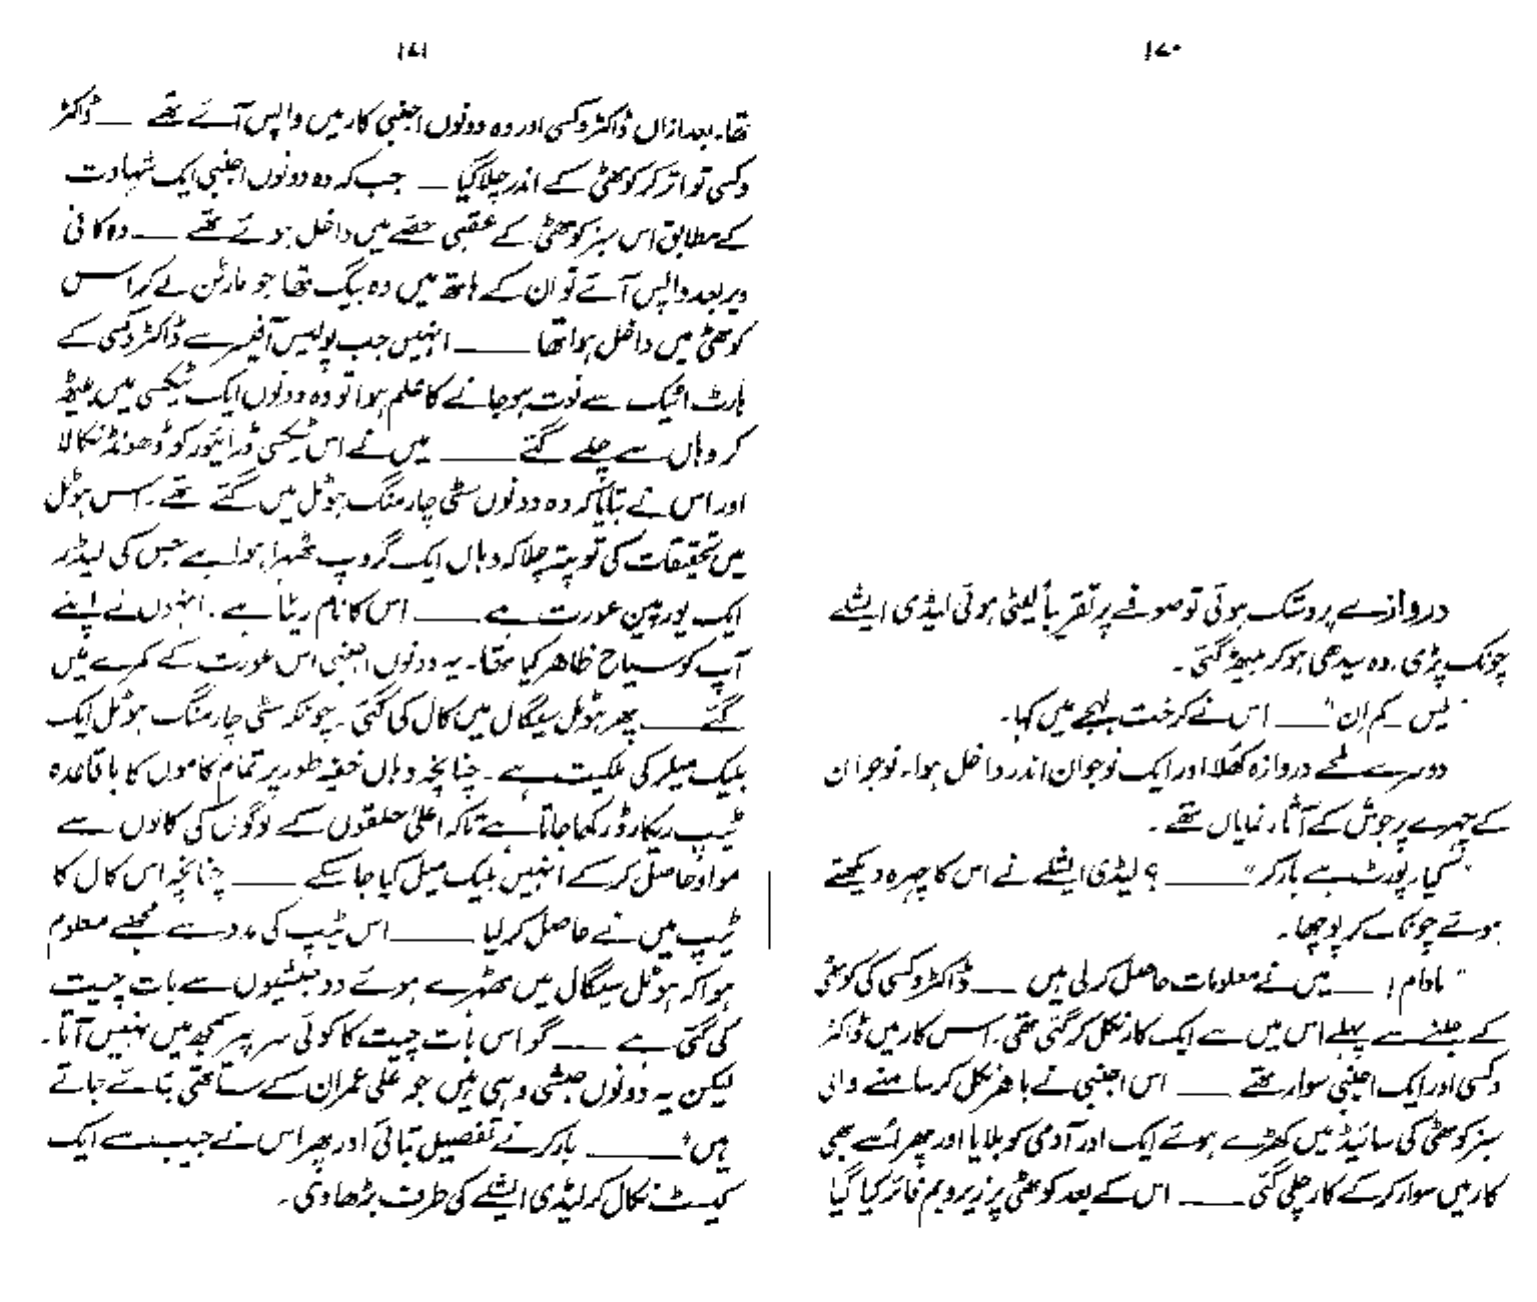 ۱۷۰
دروازے پر دستک ہوئی تو صوفے پر تقریباً لیٹی ہوئی لیڈی ایشلے
چونک پڑی۔ وہ سیدھی ہو کر بیٹھ گئی۔
"یس کم ان" ــــ اس نے کرخت لہجے میں کہا۔
دوسرے لمحے دروازہ کھلا اور ایک نوجوان اندر داخل ہوا۔ نوجوان
کے چہرے پر جوش کے آثار نمایاں تھے۔
"کیا رپورٹ ہے بارکر" ــــ ؟ لیڈی ایشلے نے اس کا چہرہ دیکھتے
ہوئے چونک کر پوچھا۔
"مادام! ــــ میں نے معلومات حاصل کر لی ہیں ــــ ڈاکٹر وکسی کی کوٹھی
کے جلنے سے پہلے اس میں سے ایک کار نکل کر گئی تھی۔ اس کار میں ڈاکٹر
وکسی اور ایک اجنبی سوار تھے ــــ اس اجنبی نے باہر نکل کر سامنے والی
سبز کوٹھی کی سائیڈ میں کھڑے ہوئے ایک اور آدمی کو بلایا اور پھر اسے بھی
کار میں سوار کر کے کار چلی گئی ــــ اس کے بعد کوٹھی پر زیرو بم فائر کیا گیا
۱۷۱
تھا۔ بعد ازاں ڈاکٹر وکسی اور وہ دونوں اجنبی کار میں واپس آئے تھے ــــ ڈاکٹر
وکسی تو اتر کر کوٹھی کے اندر چلا گیا ــــ جب کہ وہ دونوں اجنبی ایک شہادت
کے مطابق اس سبز کوٹھی کے عقبی حصے میں داخل ہوئے تھے ــــ وہ کافی
دیر بعد واپس آئے تو ان کے ہاتھ میں وہ بیگ تھا جو مارٹن لے کر اس
کوٹھی میں داخل ہوا تھا ــــ انہیں جب پولیس آفیسر سے ڈاکٹر وکسی کے
ہارٹ اٹیک سے فوت ہو جانے کا علم ہوا تو وہ دونوں ایک ٹیکسی میں بیٹھ
کر وہاں سے چلے گئے ــــ میں نے اس ٹیکسی ڈرائیور کو ڈھونڈ نکالا
اور اس نے بتایا کہ وہ دونوں سٹی چارمنگ ہوٹل میں گئے تھے۔ اس ہوٹل
میں تحقیقات کی تو پتہ چلا کہ وہاں ایک گروپ ٹھہرا ہوا ہے جس کی لیڈر
ایک یورپین عورت ہے ــــ اس کا نام ریٹا ہے۔ انہوں نے اپنے
آپ کو سیاح ظاہر کیا تھا۔ یہ دونوں اجنبی اس عورت کے کمرے میں
گئے ــــ پھر ہوٹل سیگال میں کال کی گئی۔ چونکہ سٹی چارمنگ ہوٹل ایک
بلیک میلر کی ملکیت ہے۔ چنانچہ وہاں خفیہ طور پر تمام کاموں کا باقاعدہ
ٹیپ ریکارڈ رکھا جاتا ہے تاکہ اعلیٰ حلقوں کے لوگوں کی کالوں سے
مواد حاصل کر کے انہیں بلیک میل کیا جا سکے ــــ چنانچہ اس کال کا
ٹیپ میں نے حاصل کر لیا ــــ اس ٹیپ کی مدد سے مجھے معلوم
ہوا کہ ہوٹل سیگال میں ٹھہرے ہوئے دو حبشیوں سے بات چیت
کی گئی ہے ــــ گو اس بات چیت کا کوئی سر پیر سمجھ میں نہیں آتا۔
لیکن یہ دونوں حبشی وہی ہیں جو علی عمران کے ساتھی بتائے جاتے
ہیں" ــــ بارکر نے تفصیل بتائی اور پھر اس نے جیب سے ایک
کیسٹ نکال کر لیڈی ایشلے کی طرف بڑھا دی۔